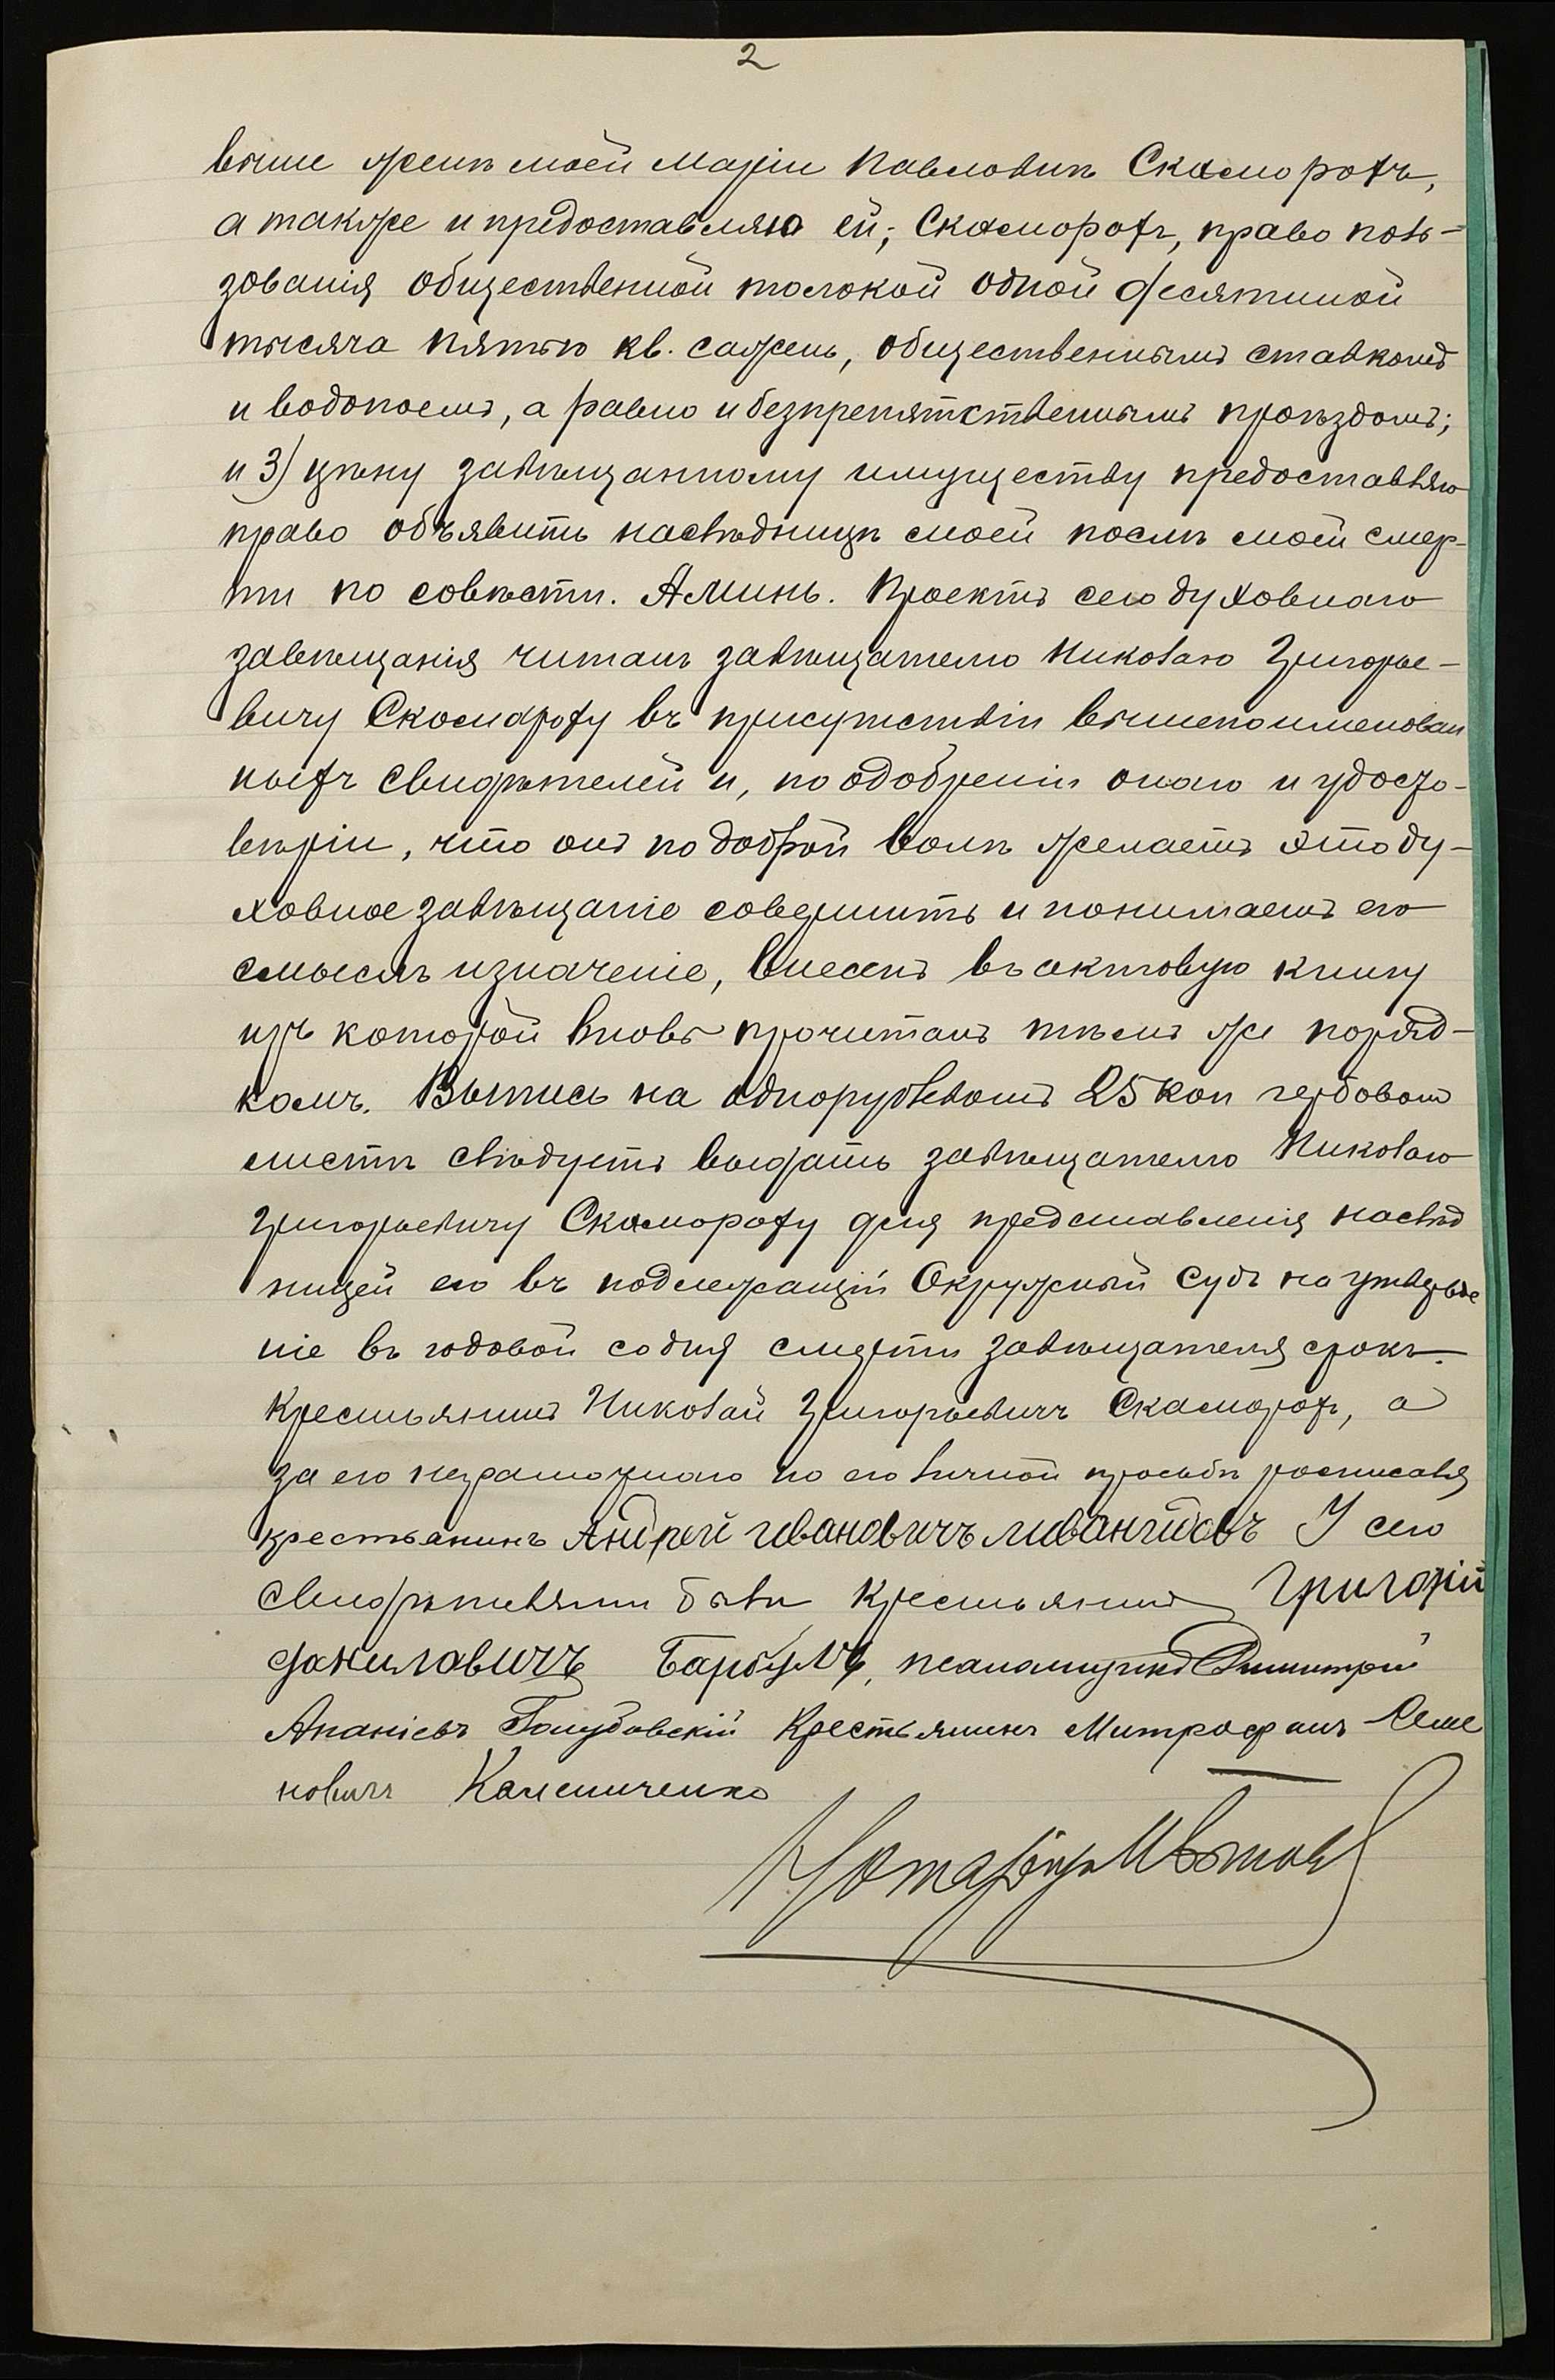 2
выше женѣ моей Маріи Павловнѣ Скоморохъ,
а также и предоставляю ей, Скоморохъ, право поль-
зованія общественной толокой одной десятиной
тысяча пятью кв. сажень, общественнымъ ставкомъ
и водопоемъ, а равно и безпрепятственнымъ проѣздомъ;
и 3) цѣну завѣщанному имуществу предоставляю
право объявить наслѣдницѣ моей послѣ моей смер-
ти по совѣсти. Аминь. Проектъ сего духовнаго
завѣщанія читанъ завѣщателю Николаю Григорье-
вичу Скомороху въ присутствіи вышепоименован
ныхъ свидѣтелей и, по одобреніи онаго и удосто-
вѣріи, что онъ по доброй волѣ желаетъ это ду-
ховное завѣщаніе совершить и понимаетъ его
смыслъ и значеніе, внесенъ въ актовую книгу
изъ которой вновь прочитанъ тѣмъ же поряд-
комъ. Выпись на однорублевомъ 25 коп гербовом
листѣ слѣдуетъ выдать завѣщателю Николаю
Григорьевичу Скомороху для представленія наслѣд
ницей его въ подлежащій Окружный Судъ на утвержде
ніе въ годовой со дня смерти завѣщателя срокъ.
Крестьянинъ Николай Григорьевичъ Скоморохъ, а
за его неграмотнаго по его личной просьбѣ росписался
крестьянинъ Андрей Ивановичъ У сего
свидѣтелями были крестьянинъ Григорій
Данилавичъ псаломщикъ Димитрій
Ананіевъ Голубовскій Крестьянинъ Митрофанъ Семе
новичъ
Нотаріусъ